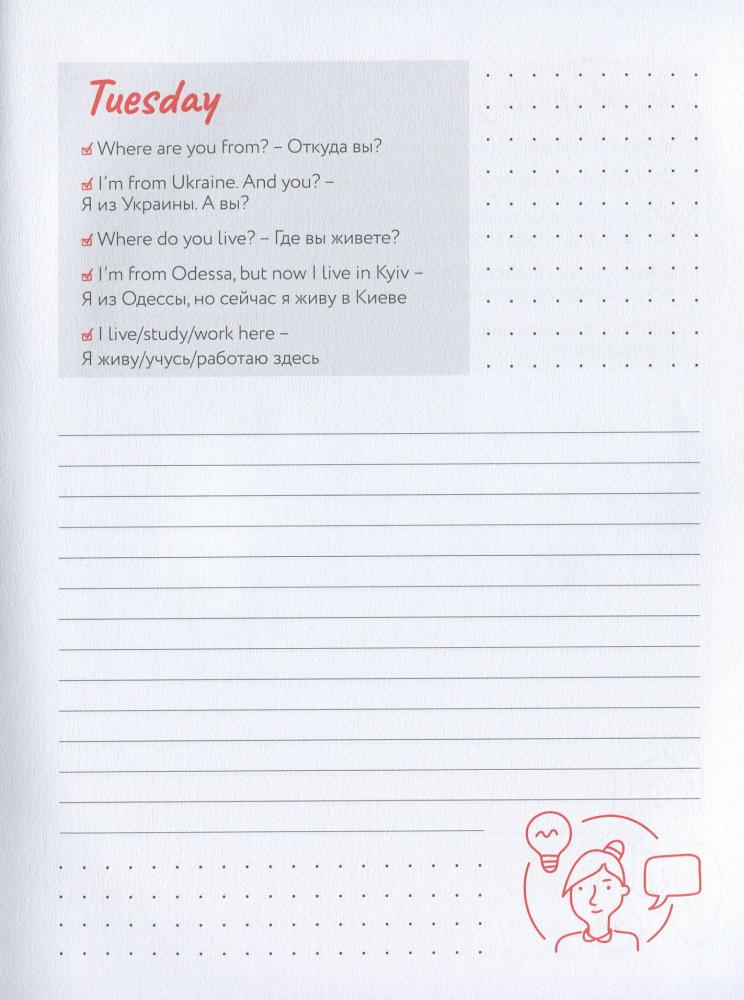 Tuesday
Where are you from? – Откуда вы?
I'm from Ukraine. And you? –
Я из Украины. А вы?
Where do you live? – Где вы живете?
I'm from Odessa, but now I live in Kyiv –
Я из Одессы, но сейчас я живу в Киеве
I live/study/work here –
Я живу/учусь/работаю здесь